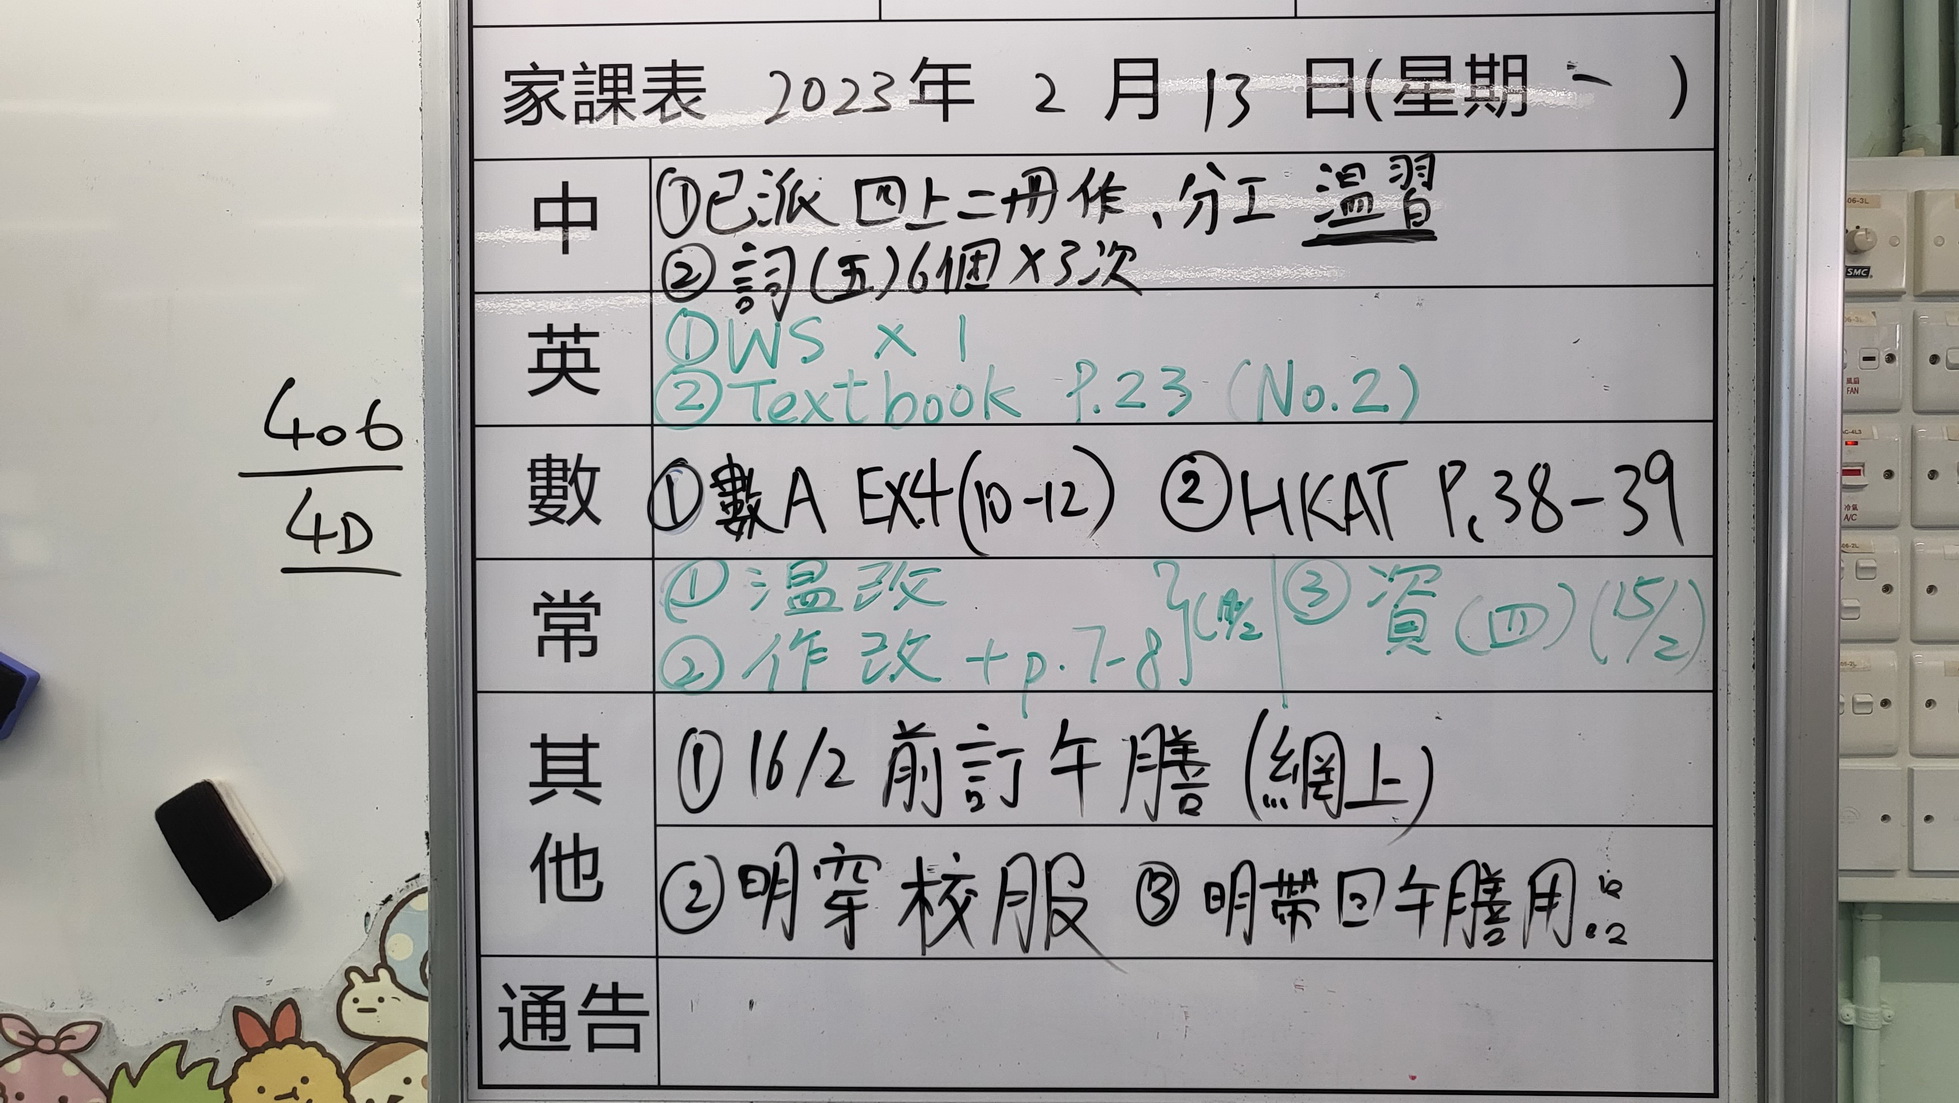 家課表 2023年 2 月 13 日(星期 一 )
中
①已派 四上二冊作、分工 溫習
②詞(五)6個×3次
英
①WS × 1
②Textbook P.23 (No.2)
406
4D
數
①數A EX4(10-12) ②HKAT P.38-39
常
①溫改
②作改+p.7-8
③資(四)(15/2)
其他
①16/2 前訂午膳(網上)
②明穿校服 ③明帶回午膳用品
通告
SMC
風扇
FAN
冷氣
A/C